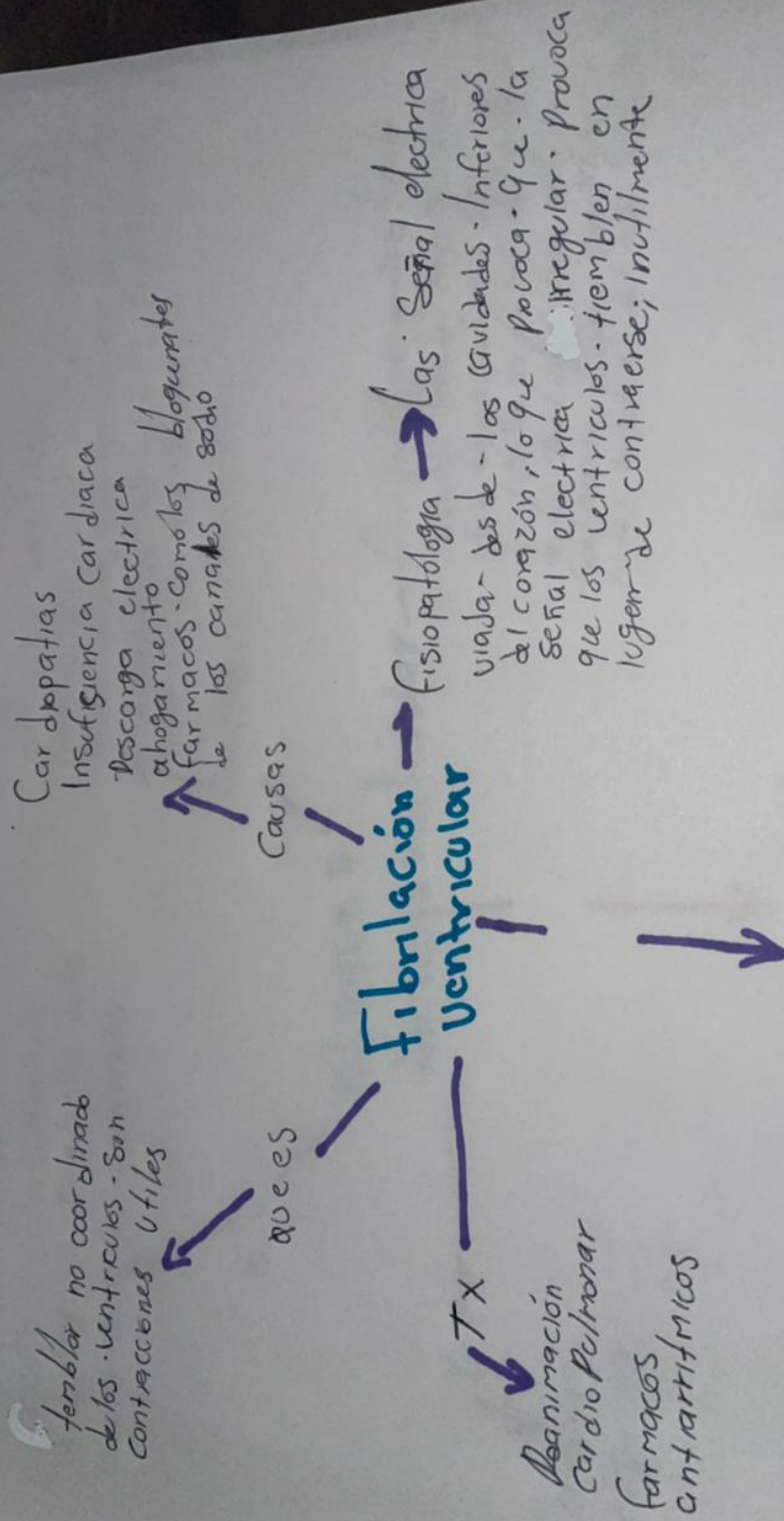 temblor no coordinado
de los · ventriculos · son
contracciones utiles
que es
Cardiopatias
Insuficiencia cardiaca
Descarga electrica
ahogamiento
farmacos · como los bloqunates
de los canales de sodio
Causas
Fibrilación
Ventricular
fisiopatologia
Las Señal electrica
viajar desde - las cavidades - Inferiores
del corazón, lo que provoca - que - la
señal electrica irregular · provoca
que los ventriculos - tiemblen en
lugar de contraerse; inutilmente
Tx
Reanimación
CardioPulmonar
farmacos
antiarritmicos